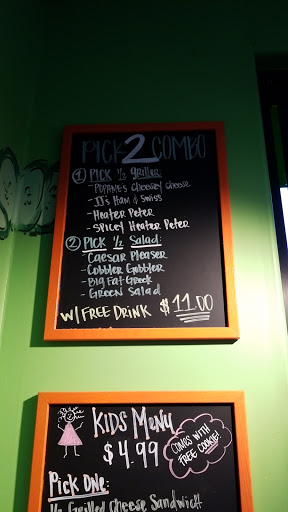 PICK 2 COMBO
① PICK ½ Griller:
- POPPINE'S CHEESEY CHEESE
- JJ's HAM & SWISS
- HEATER PETER
- SPICEY HEATER PETER
② PICK ½ Salad:
- CAESAR PLEASER
- COBBLER GOBBLER
- BIG FAT GREEK
- GREEN SALAD
W/ FREE DRINK $11.00
KIDS MENU
$4.99
COMES WITH
FREE COOKIE!
Pick One:
½ Grilled Cheese Sandwich